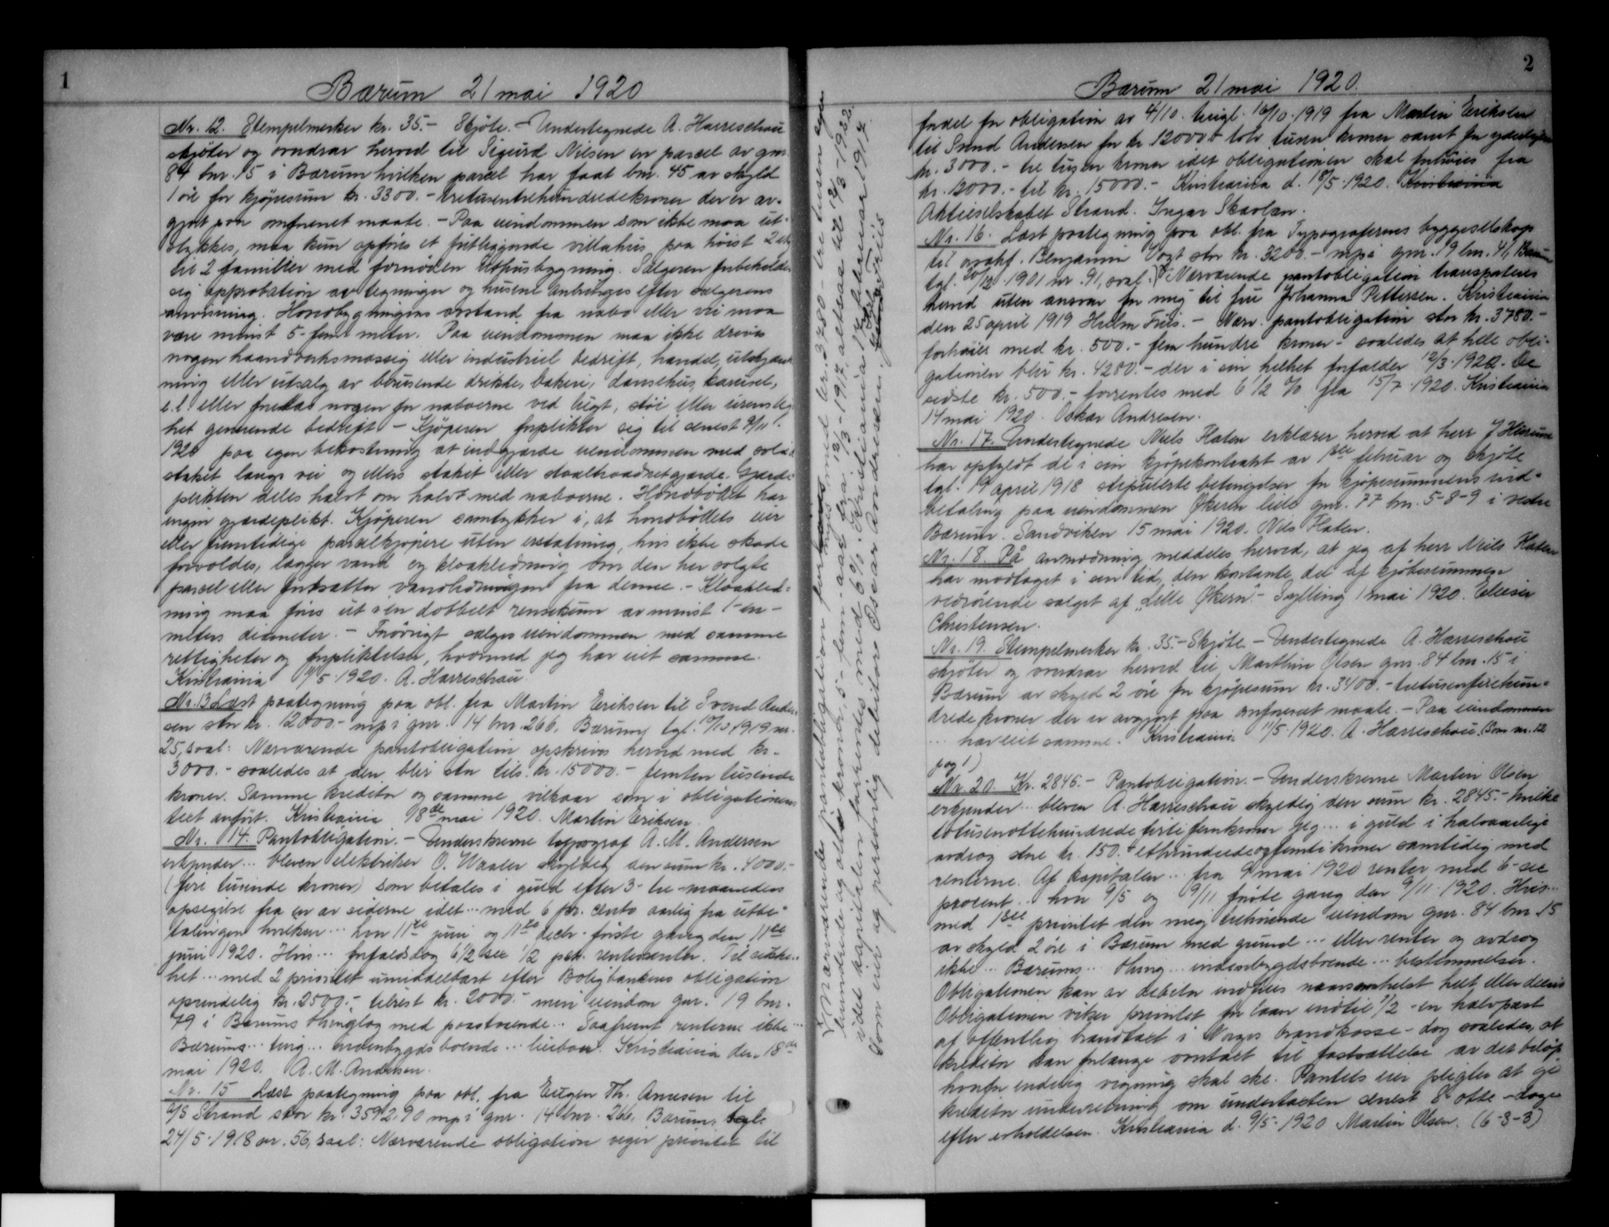 1
Bærum 21 mai 1920
Nr. 12. Stempelmerker kr. 35.- Skjöte. - Undertegnede A. Harreschou
skjöter og overdrar herved til Sigurd Nilsen en parsel av gnr.
84 bnr. 15 i Bærum hvilken parsel har faat bnr. 45 av skyld
1 öre for kjöpesum kr. 3300.- tretusentrehundredekroner der er av-
gjort paa omforenet maate. - Paa eiendommen som ikke maa ut-
stykkes, maa kun opföres et fritliggende villahus paa höist 2 etg
til 2 familier med fornöden uthusbygning. Sælgeren forbeholder
sig approbation av tegninger og husene anbringes efter sælgerens
anvisning. Hovedbygningens avstand fra nabo eller vei maa
være minst 5- fem meter. Paa eiendommen maa ikke drives
nogen haandverksmæssig eller industriel bedrift, handel, utskjænk-
ning eller utsalg av berusende drikke, bakeri, dansehus, karusel,
e.l. eller foretas nogen for naboerne ved lugt, stöi eller urenslig-
het generende bedrift - Kjöperen forplikter sig til senest 9/11
1920 paa egen bekostning at indgjærde eiendommen med solid
stakit langs vei og ellers stakit eller staaltraadnetgjærde. Gjærde-
plikten deles halvt om halvt med naboerne. Hovedbölet har
ingen gjærdeplikt. Kjöperen samtykker i, at hovedbölets eier
eller fremtidige parselkjöpere uten erstatning, hvis ikke skade
forvoldes, lægger vand og kloakledning over den her solgte
parsel eller fortsætter vandledningen fra denne. - Kloakled-
ning maa föres ut i en dobbelt rensekum av minst 1- en -
meters diameter. - Forövrigt sælges eiendommen med samme
rettigheter og forpliktelser, hvormed jeg har eiet samme.
Kristiania 11/5. 1920. A. Harreschou
Nr. 13 Læst paategning paa obl. fra Martin Eriksen til Svend Ander-
sen stor kr. 12000.- mp i gnr. 14 bnr. 266, Bærum, tgl. 17/10 1919 nr.
25, saal: Nærværende pantobligation opskrives herved med kr.-
3000.- saaledes at den blir stor tils. kr. 15000.- femten tusinde
kroner. Samme kreditor og samme vilkaar som i obligationen
tect anfört. Kristiania 18de mai 1920. Martin Eriksen.
Nr. 14 Pantobligation. - Underskrevne typograf A. M. Andersen
erkjender... bleven elektriker O. Waaler skyldig den sum kr. 4000.-
(fire tusinde kroner) som betales i guld efter 3- tre - maaneders
opsigelse fra en av siderne idet... med 6 pr. cento aarlig fra utbe-
talingen hvilken... hver 11te juni og 11te decbr. förste gang den 11te
juni 1920. Hvis... forfaldsdag 6 1/2 see 1/2 pct. rentesrenter. Til sikker-
het... med 2 prioritet umiddelbart efter Boligbankens obligation
oprindelig kr. 2500.- tilrest kr. 2000.- men eiendom gnr. 19 bnr.
79 i Bærums thinglag med paastaaende... Saafremt renterne ikke...
Bærums... ting... indenbygds boende... leiebon. Kristiania den 18de
mai 1920. A. M. Andersen.
Nr. 15 Læst paategning paa obl. fra Eilgen Th. Arnesen til
A/S Strand stor kr. 35929.0 mp i gnr. 14 bnr. 266, Bærum, tgl.
24/5. 1918 nr. 56, saal: Nærværende obligation viger prioritet til
Nærværende pantobligation forhöies med kr. 3780 - tre tusen syv
hundrede og otti kroner, 5- fem - aar fra 12/3- 1917 altsaa til 12/3- 1922
idet kapitalen forrentes med 6%. Kristiania 18 februar 1917.
Som eier og personlig debitor: Oscar Andresen. Friis
2
Bærum 21 mai 1920.
fordel for obligation av 4/10. tingl. 16/10. 1919 fra Martin Eriksen
til Svend Andersen for kr 12000.- tolv tusen kroner samt for yderligere
kr. 3000.- tre tusen kroner idet obligationen skal forhöies fra
kr. 12000.- til kr. 15000.- Kristiania d. 18/5. 1920. Kristiania
Aktieselskabet Strand. Ingar Skavlan.
Nr. 16. Læst paategning paa obl. fra Typografernes byggeselskap
til Benjamin Vogt stor kr. 3200.- mp i gnr. 19 bnr. 41, Bærum
tgl. 20/12. 1901 nr. 91, saal: Nærværende pantobligation transporteres
herved uten ansvar for mig til fru Johanna Pettersen. Kristiania
den 25 april 1919 Hulm Friis. - Nærv. pantobligation stor kr. 3780.-
forhöies med kr. 500.- fem hundre kroner - saaledes at hele obli-
gationen blir kr. 4280.- der i sin helhet forfalder 12/3. 1922. De
sidste kr. 500.- forrentes med 6 1/2 % fra 15/7. 1920. Kristiania
14 mai 1920. Oskar Andresen.
Nr. 17. Undertegnede Niels Haten erklærer herved at herr J Hiorum
har opfyldt de i sin kjöpekontrakt av 1ste februar og skjöte
tgl. 19 april 1918 stipulerte betingelser for kjöpesummens ind-
betaling paa eiendommen Økeren lille gnr. 77 bnr. 5-8-9 i vestre
Bærum. Sandviken 15 mai 1920. Niels Haten.
Nr. 18. På anmodning meddeles herved, at jeg af herr Niels Haten
har modtaget i sin tid, den kontante del af kjöbesummen
vedrörende salget af "Lille Økern" - Sylling 1 mai 1920. Elieser
Christensen.
Nr. 19. Stempelmerker kr. 35.- Skjöte - Undertegnede A. Harreschou
skjöter og overdrar herved til Marthin Olsen gnr. 84 bnr. 15 i
Bærum av skyld 2 öre for kjöpesum kr. 3400.- tretusenfirehun-
drede kroner der er avgjort paa omforenet maate. - Paa eiendommen
... har eiet samme. Kristiania 11/5. 1920. A. Harreschou. (Som nr. 12
pag 1)
Nr. 20 Kr. 2845.- Pantobligation. - Underskrevne Martin Olsen
erkjender... bleven A. Harreschou skyldig den sum kr. 2845.- hvilke
totusenottehundrede firti femkroner jeg... i guld i halvaarlige
avdrag store kr. 150.- ethundredeogfemti kroner samtidig med
renterne. Af kapitalen... fra 9 mai 1920 renter med 6- sex
procent... hver 9/5 og 9/11 förste gang den 9/11. 1920. Hvis...
med 1ste prioritet den mig tilhörende eiendom gnr. 84 bnr. 15
av skyld 2 öre i Bærum med grund... eller renter og avdrag
ikke... Bærums... thing... indenbygdsboende... bestemmelser.
Obligationen kan av debitor indfries naarsomhelst helt eller delvis
Obligationen viker prioritet for laan indtil 1/2 - en halvpart
af offentlig brandtakst i Norges brandkasse - dog saaledes, at
kreditor kan forlange kontant til fastsættelse av det belöp
hvorfor endelig vigning skal ske. Pantets eier plegter at gi
kreditor underretning om undertakten senest 8 otte - dage
efter erholdelsen. Kristiania d. 9/5. 1920 Martin Olsen. (6-3-3)